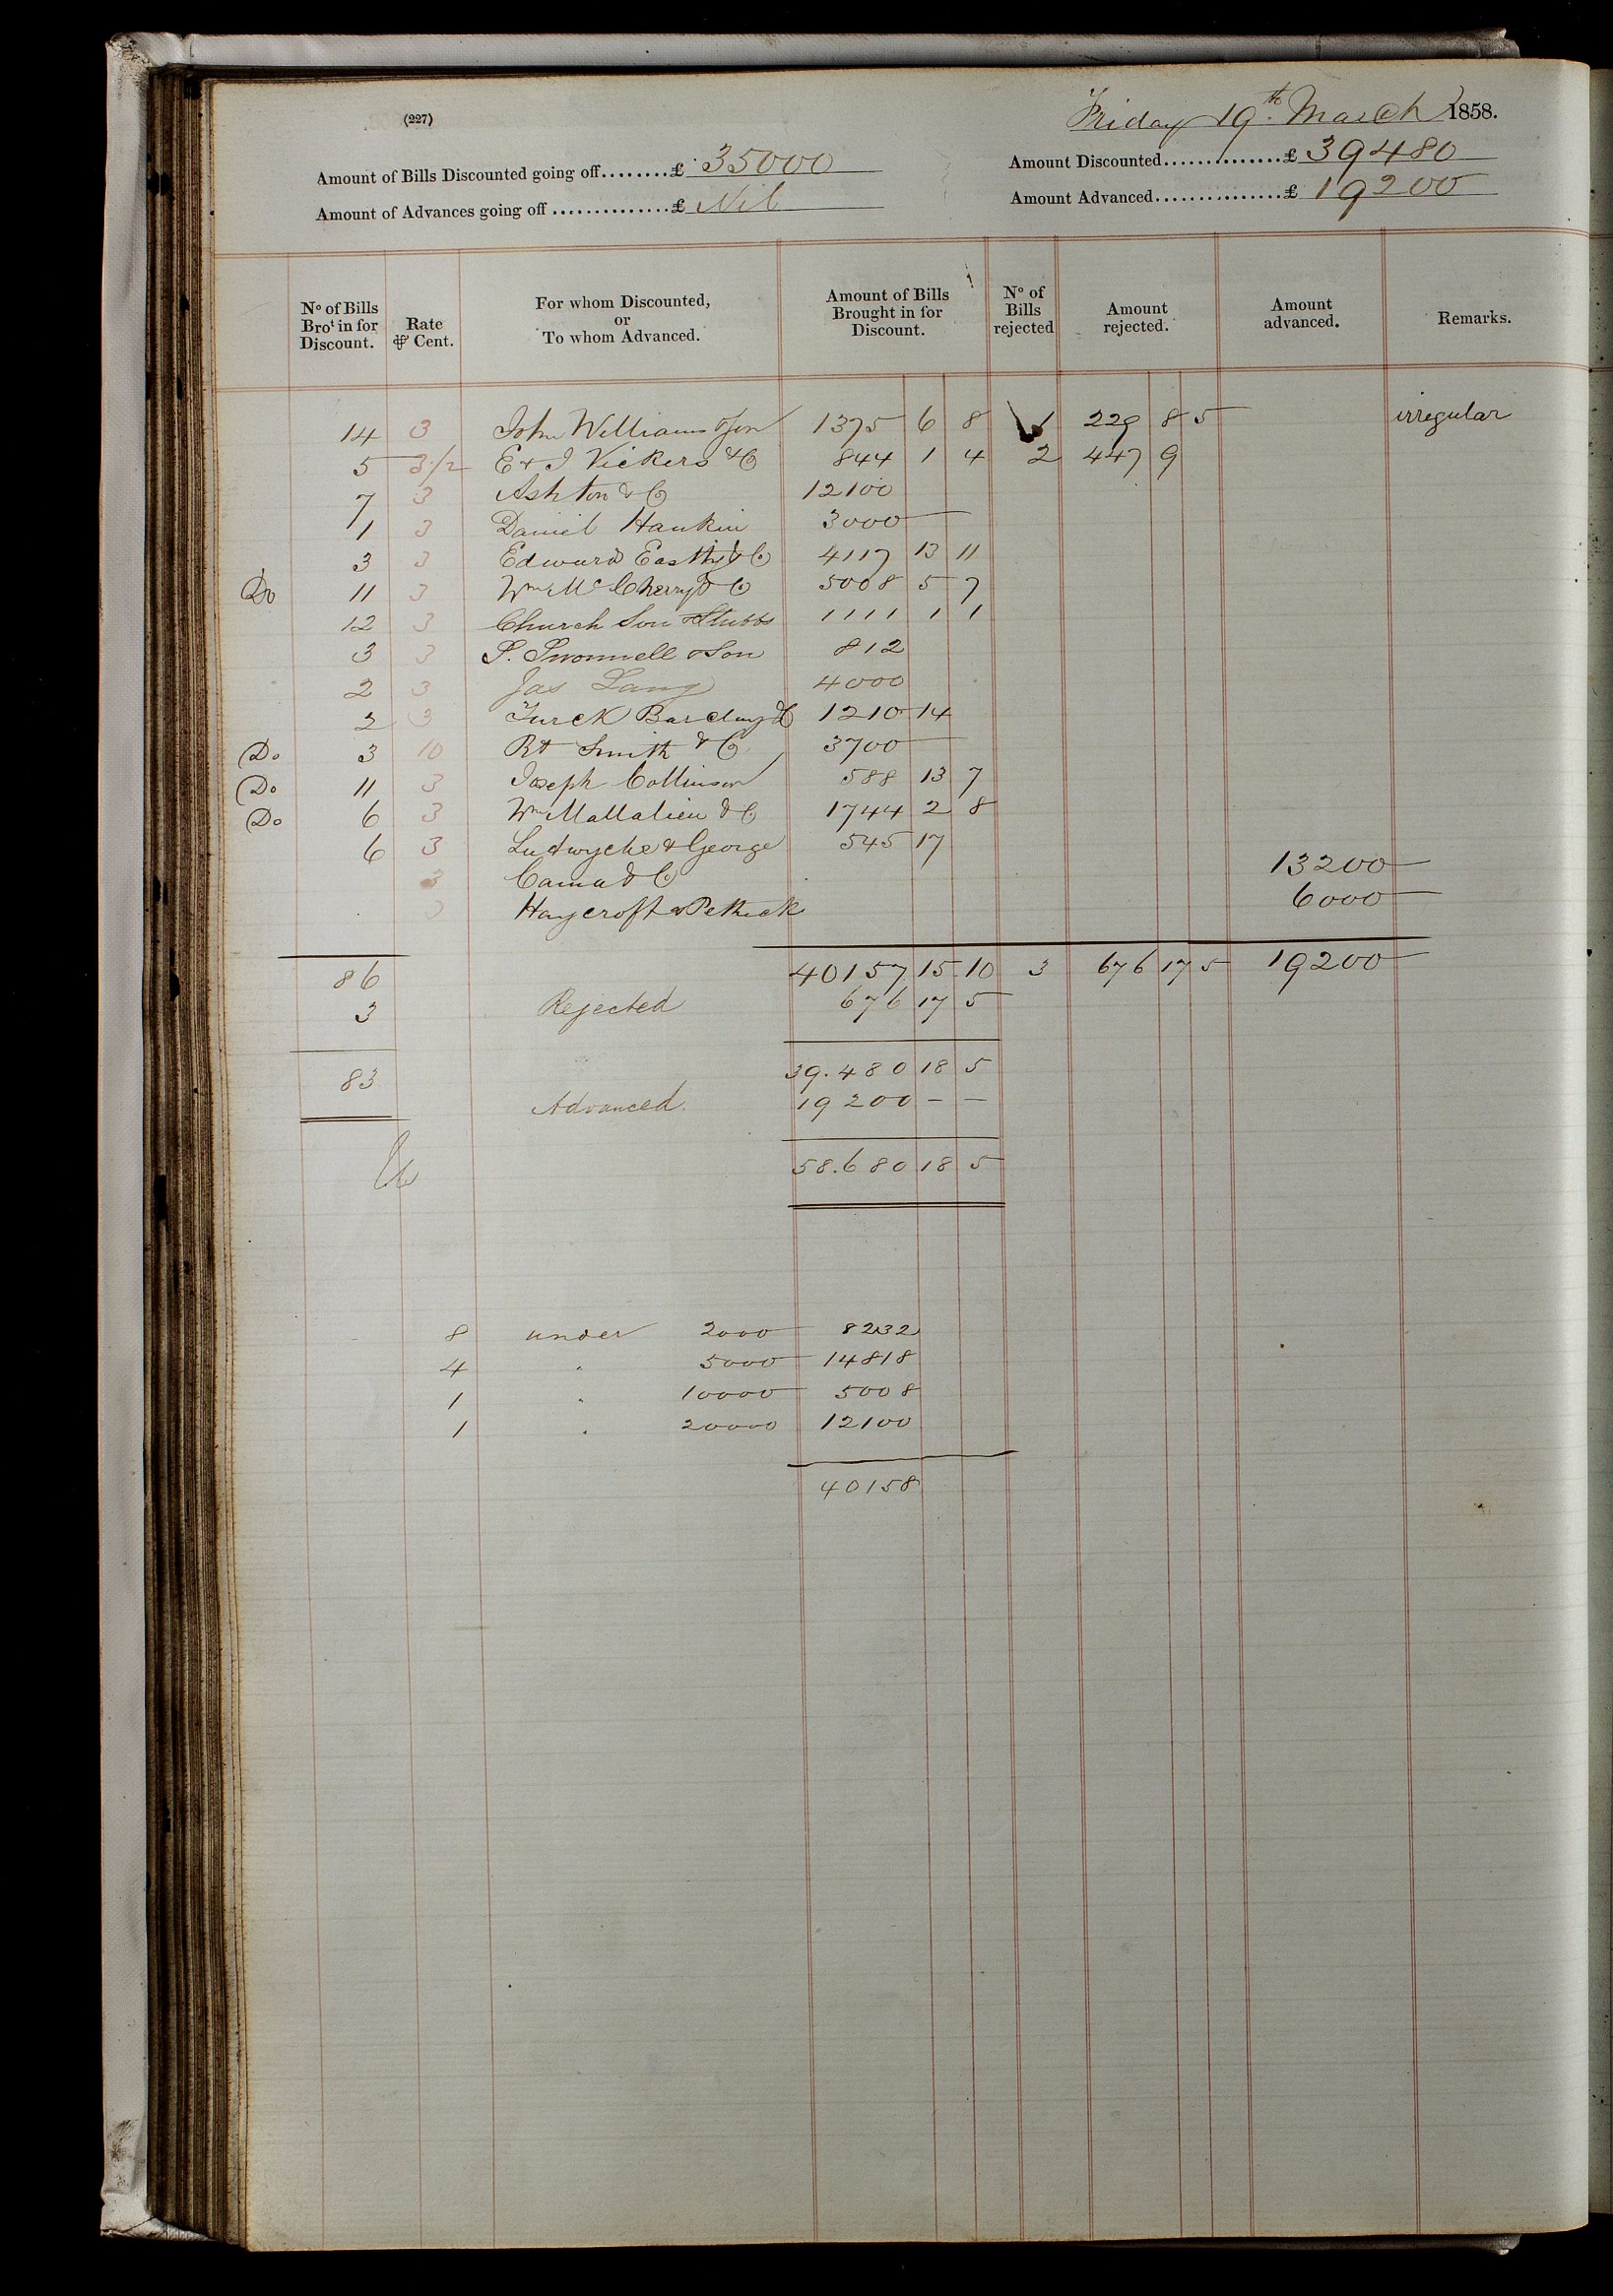 (227)
Friday 19th March 1858.
Amount of Bills Discounted going off........£ 35000
Amount Discounted..............£ 39480
Amount of Advances going off ..............£ Nil
Amount Advanced...............£ 19200
No of Bills Brot in for Discount. Rate ⅌ Cent. For whom Discounted, or To whom Advanced. Amount of Bills Brought in for Discount. No of Bills rejected Amount rejected. Amount advanced. Remarks.
14 3 John Williams & Son 1375 6 8 1 229 8 5 irregular
5 3 1/2 E & J Vickers & Co 844 1 4 2 447 9
7 3 Ashton & Co 12100
1 3 Daniel Hankin 3000
3 3 Edward Easthy & Co 4117 13 11
Do 11 3 Wm McCherry & Co 5008 5 7
12 3 Church Son & Stubbs 1111 1 1
3 3 & Son 812
2 3 Jas Lang 4000
2 3 Turck Barclay & Co 1210 14
Do 3 10 Rt Smith & Co 3700
Do 11 3 Joseph Collinson 588 13 7
Do 6 3 Wm Mallalieu & Co 1744 2 8
6 3 Ludwyche & George 545 17
3 Cama & Co 13200
3 Haycroft & Pethick 6000
86 40157 15 10 3 676 17 5 19200
3 Rejected 676 17 5
83 39.480 18 5
Advanced. 19200 - -
58.680 18 5
8 under 2000 8232
4 " 5000 14818
1 " 10000 5008
1 " 20000 12100
40158